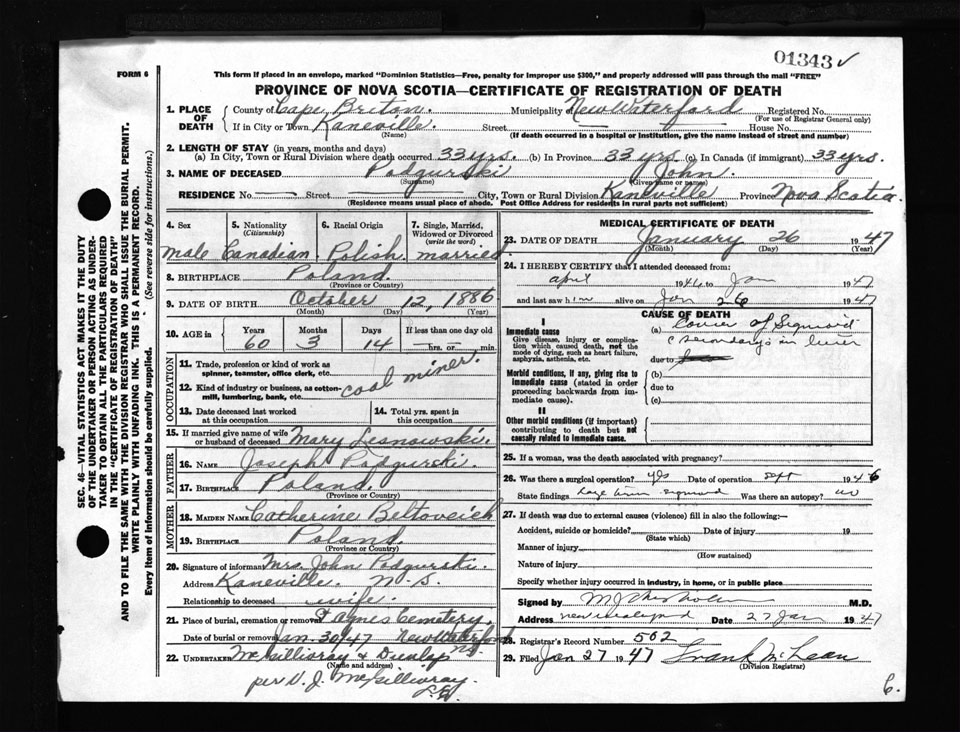 01343✓
FORM 6
This form if placed in an envelope, marked "Dominion Statistics—Free, penalty for improper use $300," and properly addressed will pass through the mail "FREE"
PROVINCE OF NOVA SCOTIA—CERTIFICATE OF REGISTRATION OF DEATH
1. PLACE OF DEATH County of Cape Briton. Municipality of New Waterford Registered No.
(For use of Registrar General only)
If in City or Town Kaneville. Street House No.
(Name) (If death occurred in a hospital or institution, give the name instead of street and number)
2. LENGTH OF STAY (in years, months and days)
(a) In City, Town or Rural Division where death occurred 33 yrs. (b) In Province 33 yrs. (c) In Canada (if immigrant) 33 yrs.
3. NAME OF DECEASED Podgurski John.
(Surname) (Given name or names)
RESIDENCE No. Street City, Town or Rural Division Kaneville Province Nova Scotia.
(Residence means usual place of abode. Post Office Address for residents in rural parts not sufficient)
4. Sex 5. Nationality (Citizenship) 6. Racial Origin 7. Single, Married, Widowed or Divorced (write the word)
male Canadian. Polish married
8. BIRTHPLACE Poland.
(Province or Country)
9. DATE OF BIRTH October 12, 1886
(Month) (Day) (Year)
10. AGE in Years Months Days If less than one day old
60 3 14 hrs. or min.
OCCUPATION
11. Trade, profession or kind of work as spinner, teamster, office clerk, etc.
12. Kind of industry or business, as cotton-mill, lumbering, bank, etc. coal miner.
13. Date deceased last worked at this occupation
14. Total yrs. spent in this occupation
15. If married give name of wife or husband of deceased Mary Lesnowski.
FATHER
16. NAME Joseph Podgurski.
17. BIRTHPLACE Poland.
(Province or Country)
MOTHER
18. MAIDEN NAME Catherine Beltoveich
19. BIRTHPLACE Poland.
(Province or Country)
20. Signature of informant Mrs. John Podgurski.
Address Kaneville. N. S.
Relationship to deceased wife.
21. Place of burial, cremation or removal St Agnes Cemetery.
Date of burial or removal Jan. 30/47 New Waterford NS.
22. UNDERTAKER McGillivray & Dunlap
(Name and address)
per V. J. McGillivray.
MEDICAL CERTIFICATE OF DEATH
23. DATE OF DEATH January 26 1947
(Month) (Day) (Year)
24. I HEREBY CERTIFY that I attended deceased from:
April 1946 to Jan 1947
and last saw him alive on Jan 26 1947
CAUSE OF DEATH
I
Immediate cause
Give disease, injury or complication which caused death, not the mode of dying, such as heart failure, asphyxia, asthenia, etc.
(a) Cancer of Sigmoid
(secondarys in liver
due to
Morbid conditions, if any, giving rise to immediate cause (stated in order proceeding backwards from immediate cause).
(b)
due to
(c)
II
Other morbid conditions (if important) contributing to death but not causally related to immediate cause.
25. If a woman, was the death associated with pregnancy?
26. Was there a surgical operation? yes Date of operation Sept 1946
State findings sigmoid Was there an autopsy? no
27. If death was due to external causes (violence) fill in also the following:—
Accident, suicide or homicide? Date of injury 19
(State which)
Manner of injury
(How sustained)
Nature of injury
Specify whether injury occurred in industry, in home, or in public place
Signed by M.D.
Address New Waterford Date 27 Jan 1947
28. Registrar's Record Number 502
29. Filed Jan 27 1947 Frank McLean
(Division Registrar)
6.
SEC. 46—VITAL STATISTICS ACT MAKES IT THE DUTY
OF THE UNDERTAKER OR PERSON ACTING AS UNDER-
TAKER TO OBTAIN ALL THE PARTICULARS REQUIRED
IN THE "CERTIFICATE OF REGISTRATION OF DEATH"
AND TO FILE THE SAME WITH THE DIVISION REGISTRAR WHO SHALL ISSUE THE BURIAL PERMIT.
WRITE PLAINLY WITH UNFADING INK. THIS IS A PERMANENT RECORD.
Every item of information should be carefully supplied. (See reverse side for instructions.)